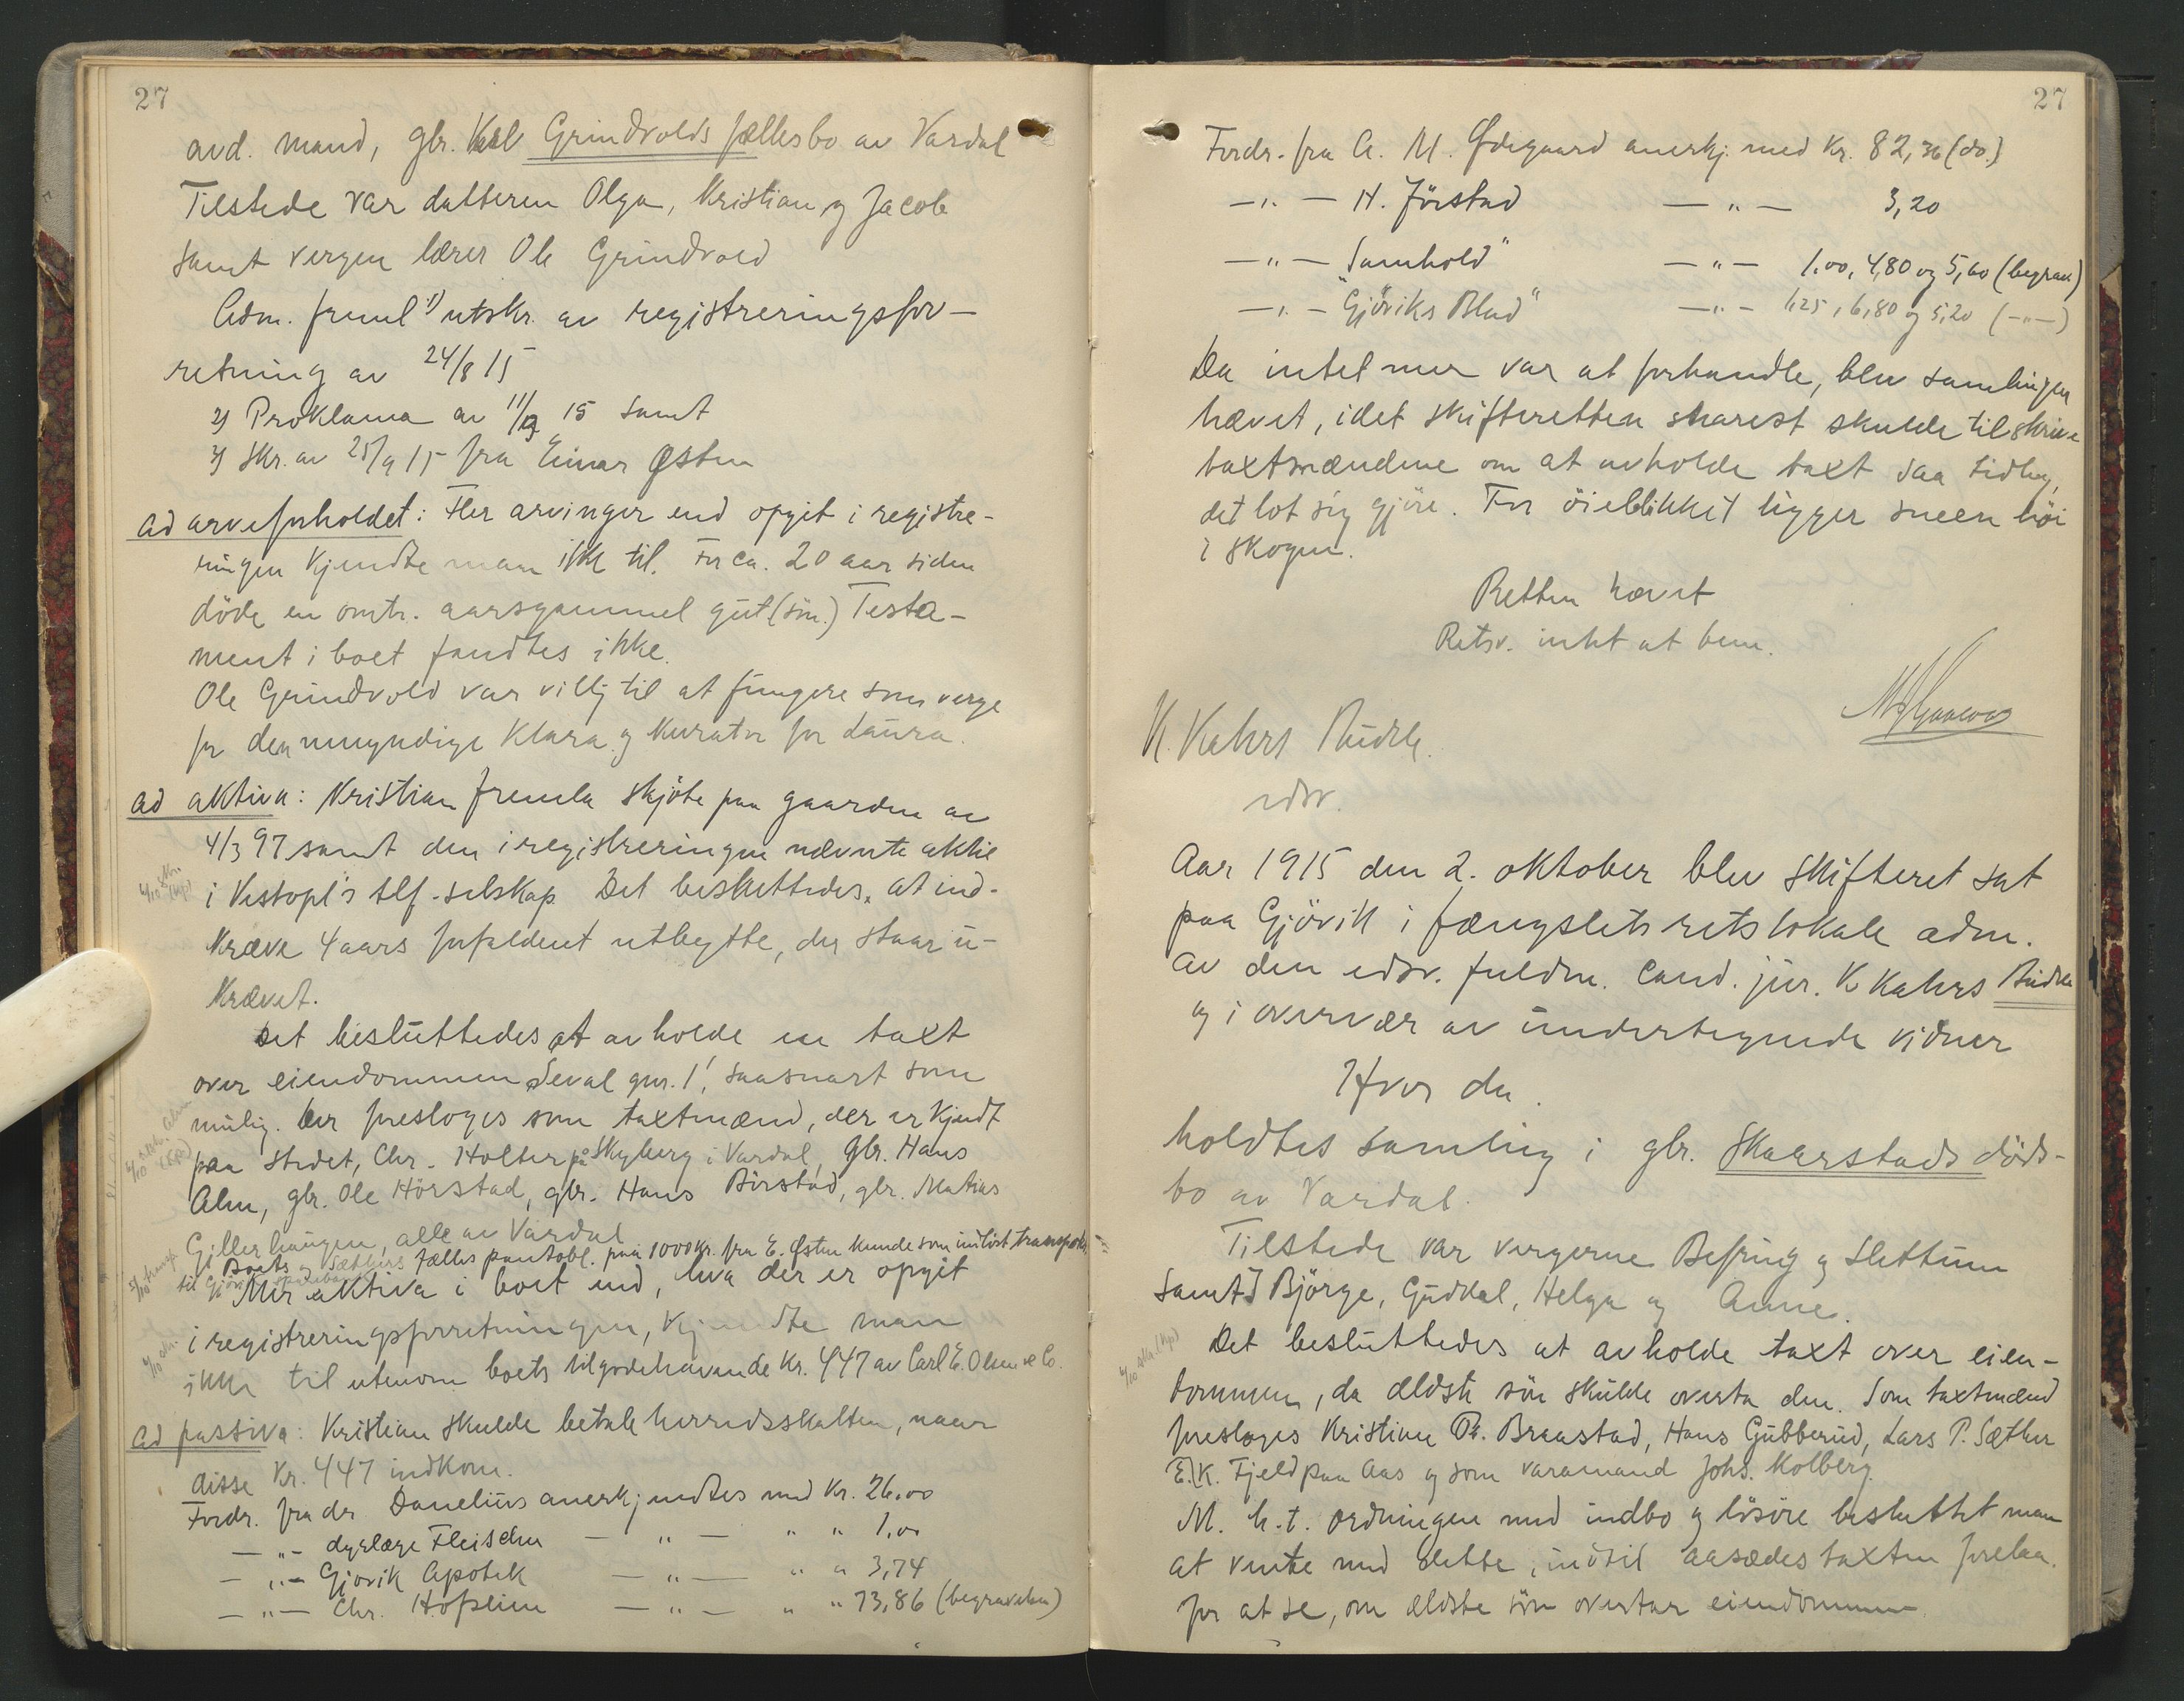 27
avd. mand, gbr. Karl Grindvolds fællesbo av Vardal
Tilstede var datteren Olga, Kristian og Jacob
samt vergen lærer Ole Grindvold
Adm. freml 1) utskr. av registreringsfor-
retning av 24/8 15
2) Proklama av 11/9 15 samt
3) Skr. av 25/9 15 fra Einar Østen
ad arveforholdet: Fler arvinger end opgit i registre-
ringen kjendte man ikke til. For ca. 20 aar siden
döde en omtr. aarsgammel gut (sön.) Testa-
ment i boet fandtes ikke.
Ole Grindvold var villig til at fungere som verge
for den umyndige Klara og kurator for Laura.
ad aktiva: Kristian fremla skjöte paa gaarden av
4/3 97 samt den i registreringen nævnte aktie
i Vestopl's tlf-selskap. Det besluttedes, at ind-
kræve 4 aars forfaldent utbytte, der staar u-
krævet.
Det besluttedes at avholde en taxt
over eiendommen Seval gnr. 1, saasnart som
mulig. Der foresloges som taxtmænd, der er kjendt
paa stedet, Chr. Holter på Skyberg i Vardal, gbr. Hans
Alm, gbr. Ole Hörstad, gbr. Hans Börstad, gbr. Matias
Gjillerhaugen, alle av Vardal
Boets og Sæthers fælles pantobl. paa 1000 Kr. fra E. Østen kunde som indlöst transporteres
til Gjövik sparebank
Mer aktiva i boet end, hva der er opgit
i registreringsforretningen, kjendte man
ikke til utenom boets tilgodehavende Kr. 447 av Carl E. Olsen & Co.
ad passiva: Kristian skulde betale herredsskatten, naar
disse Kr. 447 indkom.
Fordr. fra dr. Danelius anerkjendtes med Kr. 26.00
— " — dyrlæge Fleischer — " — " " 1,00
— " — Gjövik Apotek — " — " " 3,74
— " — Chr. Hofseim — " — " " 73,86 (begravelsen)
27
Fordr. fra A. M. Ødegaard anerkj. med Kr. 82,36 (do.)
— " — H. Jörstad — " — 3,20
— " — "Samhold" — " — 1.00, 4,80 og 5,60 (begrav.)
— " — "Gjöviks Blad" — " — 1,25, 6,80 og 5,20 (—"—)
Da intet mer var at forhandle, blev samlingen
hævet, idet skifteretten snarest skulde tilskrive
taxtmændene om at avholde taxt saa tidlig,
det lot sig gjöre. For öieblikket ligger sneen höi
i skogen.
Retten hævet
Retsv. intet at bem.
K. Kahrs Budde.
edsv.
Aar 1915 den 2. oktober blev skifteret sat
paa Gjövik i fængslets retslokale adm.
av den edsv. fuldm. cand. jur. K Kahrs Budde
og i overvær av undertegnede vidner
Hvor da
holdtes samling i gbr. Skaarstads döds-
bo av Vardal.
Tilstede var vergerne Befring og Slettum
samt Björge, Guddal, Helga og Anne.
Det besluttedes at avholde taxt over eien-
dommen, da ældste sön skulde overta den. Som taxtmænd
foresloges Kristian Pr. Braastad, Hans Gubberud, Lars P. Sæther
E. K. Fjeld paa Aas og som varamand Johs. Kolberg.
M. h. t. ordningen med indbo og lösöre besluttet man
at vente med dette, indtil aasædestaxten forelaa.
for at se, om ældste sön overtar eiendommen